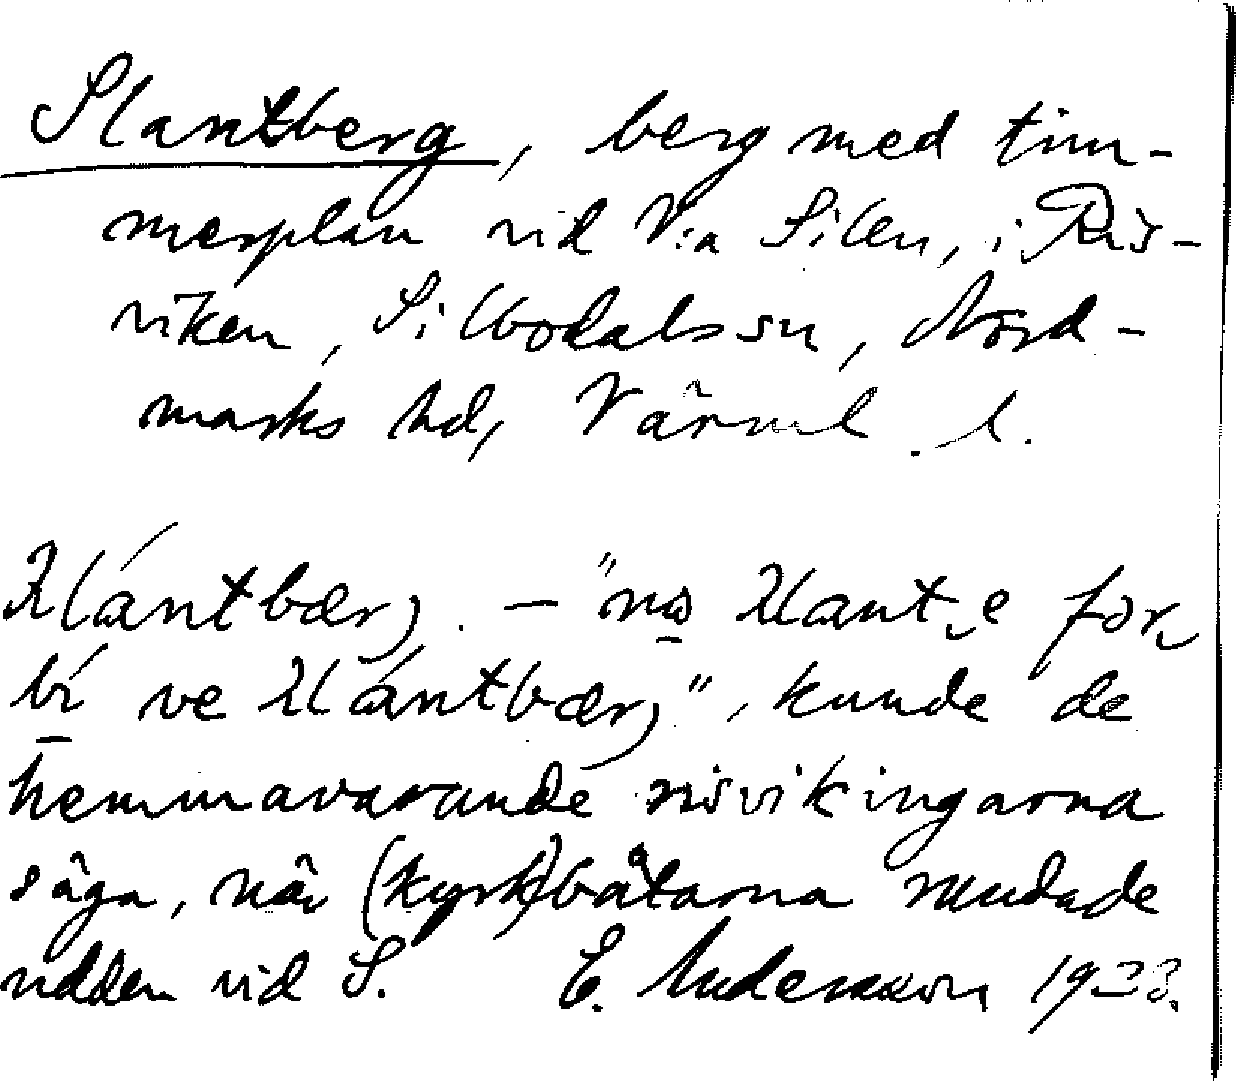 Slantberg, berg med tim-
merplan vid V:a Silen, i Ris-
viken, Silbodals sn, Nord-
marks hd, Värml. l.
bí ve
", kunde de
hemmavarande risvikingarna
säga, när (kyrk)båtarna rundade
udden vid S. E. Andersson 1933.